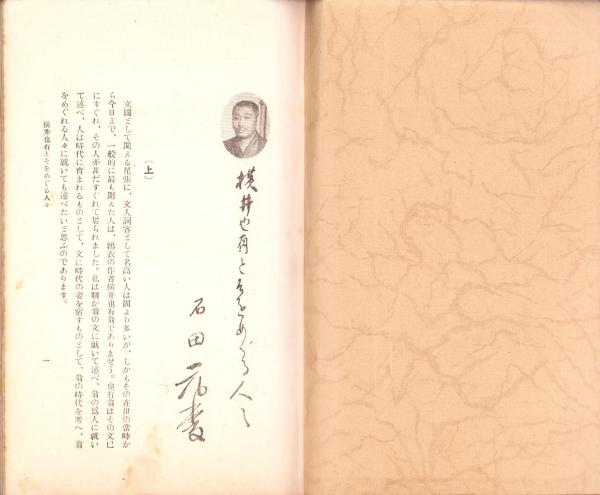 横井也有とそをめぐる人々
石田元季
(上)
文國として聞える尾張に、文人詞客として名高い人は固より多いが、しかもその在世の當時か
ら今日まで、一般的に最も聞えた人は、鶉衣の作者横井也有翁でありませう。也有翁はその文已
にすぐれ、その人亦甚だすぐれて居られました。私は聊か翁の文に就いて述べ、翁の爲人に就い
て述べ、人は時代に育まれるものとして、文に時代の姿を宿すものとして、翁の時代を考へ、翁
をめぐれる人々に就いても述べたいと思ふのであります。
横井也有とそをめぐる人々
一